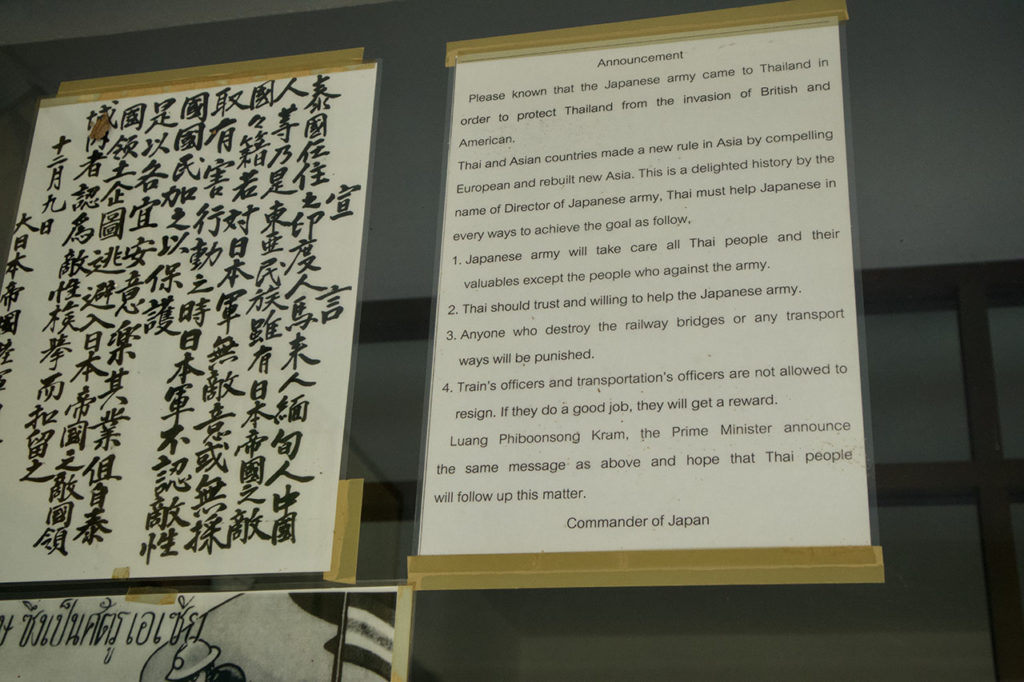 宣言
泰國在住之印度人馬来人緬甸人中國
人等乃是東亜民族雖有日本帝國之敵
國々籍若対日本軍無敵意或無採
取有害行動之時日本軍不認敵性
國國民加之以保護
是以各宜安意樂其業但自泰
國領土企圖逃避入日本帝國之敵國領
域者認為敵性検挙而扣留之
十二月九日
大日本帝國陸軍
Announcement
Please known that the Japanese army came to Thailand in
order to protect Thailand from the invasion of British and
American.
Thai and Asian countries made a new rule in Asia by compelling
European and rebuilt new Asia. This is a delighted history by the
name of Director of Japanese army, Thai must help Japanese in
every ways to achieve the goal as follow,
1. Japanese army will take care all Thai people and their
valuables except the people who against the army.
2. Thai should trust and willing to help the Japanese army.
3. Anyone who destroy the railway bridges or any transport
ways will be punished.
4. Train's officers and transportation's officers are not allowed to
resign. If they do a good job, they will get a reward.
Luang Phiboonsong Kram, the Prime Minister announce
the same message as above and hope that Thai people
will follow up this matter.
Commander of Japan
ซึ่งเป็นศัตรูเอเซีย